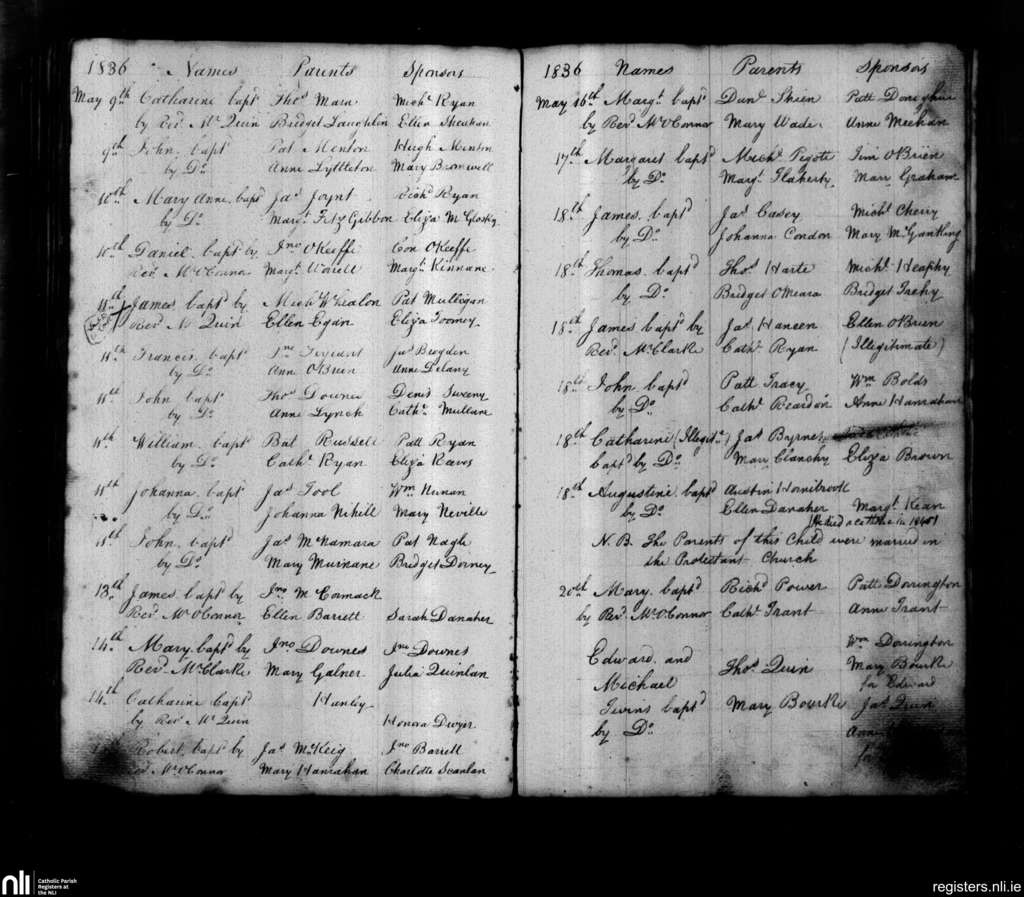 1836 Names Parents Sponsors
May 9th Catharine bapd Thos Mara Michl Ryan
by Revd Mr Quin Bridget Laughlin Ellen Sheahan
9th John bapd Pat Menton Hugh Menton
by Do Anne Lyttleton Mary Bromwell
10th Mary Anne bapd Jas Joynt Richd Ryan
by Do Margt FitzGibbon Eliza McGlosky
10th Daniel bapd by Jno OKeeffe Con OKeeffe
Revd Mr OConnor Margt Worell Margt Kinnane
11th James bapd by Michl Whealon Pat Mulligan
Revd Mr Quin Ellen Egan Eliza Toomey
11th Francis bapd Jno Jas Brogden
by Do Anne OBrien Anne Delany
11th John bapd Thos Downes Denis Sweeny
by Do Anne Lynch Cathe
11th William bapd Bat Russell Patt Ryan
by Do Cathe Ryan Eliza Reeves
11th Johanna bapd Jas Tool Wm Nunan
by Do Johanna Nihill Mary Neville
11th John bapd Jas McNamara Pat Nagle
by Do Mary Murnane Bridget Dorney
13th James bapd by Jno McCormack
Revd Mr OConnor Ellen Barrett Sarah Danaher
14th Mary bapd by Jno Downes Jno Downes
Revd Mr Clarke Mary Galner Julia Quinlan
14th Catharine bapd Hanly
by Revd Mr Quin Honora Dwyer
Robert bapd by Jas McKeig Jno Barrett
Mr OConnor Mary Hanrahan Charlotte Scanlan
1836 Names Parents Sponsors
May 16th Margt bapd Danl Skeen Patt Donoghue
by Revd Mr OConnor Mary Wade Anne Meehan
17th Margaret bapd Michl Pigott Tim OBrien
by Do Margt Flaherty Mary Graham
18th James bapd Jas Casey Michl Cherry
by Do Johanna Condon Mary
18th Thomas bapd Thos Harte Michl Heaphy
by Do Bridget OMeara Bridget
18th James bapd by Jas Hansen Ellen OBrien
Revd Mr Clarke Cathe Ryan (Illegitimate)
18th John bapd Patt Tracy Wm Bolds
by Do Cathe Reardon Anne Hanrahan
18th Catharine (Illegite) Jas Byrnes
bapd by Do Mary Clanchy Eliza Brown
18th Augustine bapd Austin Hornibrook
by Do Ellen Danaher Margt Kean
N.B. The Parents of this Child were married in
the Protestant Church
20th Mary bapd Richd Power Patt Dorrington
by Revd Mr OConnor Cathe Grant Anne Grant
Wm Dorington
Edward and Thos Quin Mary Bourke
Michael for Edward
Twins bapd Mary Bourke Jas Quin
by Do
nli Catholic Parish
Registers at
the NLI
registers.nli.ie